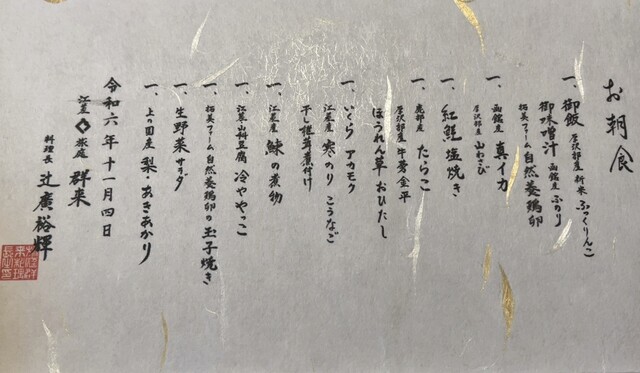 お朝食
一、御飯 厚沢部産 新米 ふっくりんこ
御味噌汁 函館産 ふのり
拓美ファーム 自然養鶏卵
一、函館産 真イカ
厚沢部産 山わさび
一、紅鮭塩焼き
一、鹿部産 たらこ
厚沢部産 牛蒡金平
ほうれん草 おひたし
一、いくら アカモク
江差産 寒のり こうなご
干し椎茸煮付け
一、江差産 鰊の煮物
一、江差・山料豆腐 冷ややっこ
一、拓美ファーム 自然養鶏卵の玉子焼き
一、生野菜サラダ
一、上ノ国産 梨・あきあかり
令和六年十一月四日
江差 旅庭 群来
料理長 辻廣裕輝